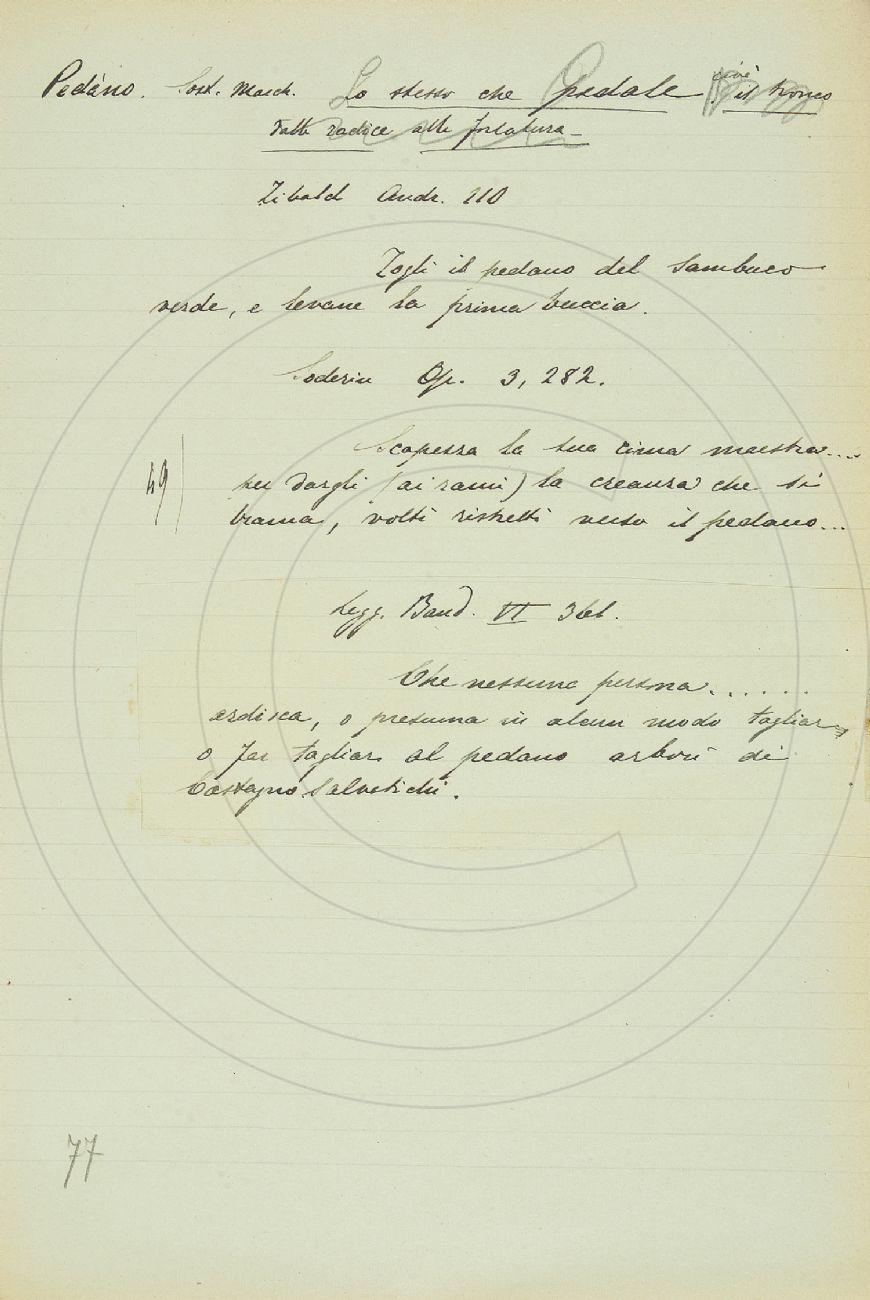 Pedáno. Sost. Masch. Lo stesso che Pedale, cioè il tronco
dalla radice alla forcatura_
Zibald Andr. 110
Togli il pedano del Sambuco
verde, e levane la prima buccia.
Soderin Op. 3, 282.
Scapezza la sua cima maestra....
49 per dargli (ai rami) la creanza che si
brama, volti ristretti verso il pedano...
Legg. Band. VI 361.
Che nessuna persona......
ardisca, o presuma in alcun modo tagliare
o far tagliare al pedano arbori di
Castagno Salvatichi.
77